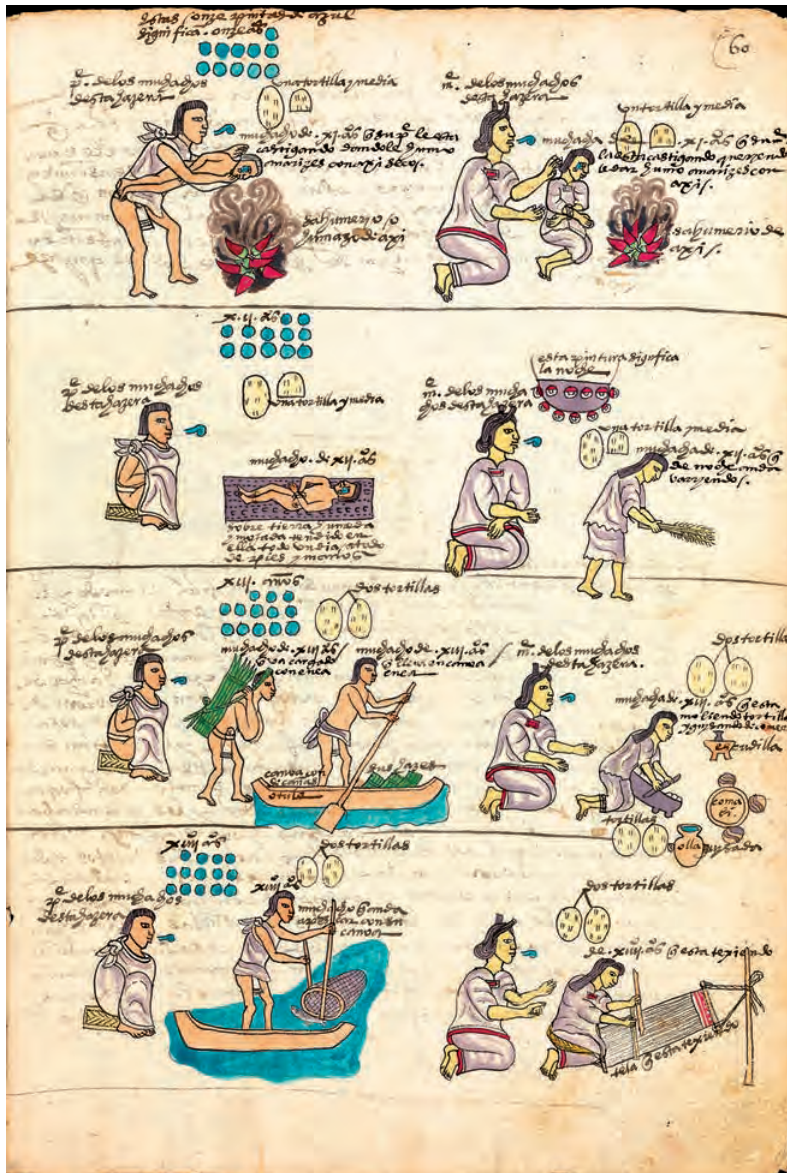 estas onze pintas de azul
significa. onze años
60
p^e. de los muchachos
desta hazera
una tortilla y media
muchacho de .xi. a^os q̃ su p^e le esta
castigando dandole humo
a narizes con axi secos.
sahumerio o
humazo de axi
m^e. de los muchachos
desta hazera
un tortilla y media
muchacha de .xi. a^os q̃ su m^e
la esta castigando queriendo
le dar humo a narizes con
axis.
sahumerio de
axis.
x.ii. a^os
p^e. de los muchachos
desta hazera
una tortilla y media
muchacho. de xii. a^os
sobre tierra humeda
y mojada tendido en
ella todo un dia atado
de pies y manos
esta pintura significa
la noche
m^e. de los mucha
chos desta hazera
una tortilla y media
muchacha de .xii. a^os q̃
de noche anda
varryendo.
xiii. años
dos tortillas
p^e. de los muchachos
desta hazera
muchacho de .xiii. a^os
q̃ va cargado
con enea
muchacho de .xiii. a^os
q̃ lleva en canoa
enea
canoa con
sus hazes
de cañas
o tule
m^e. de los muchachos
desta hazera.
dos tortillas
muchacha de .xiii. a^os q̃ esta
moliendo tortillas
y guisando de comer
escudilla
comali.
tortillas
olla
guisada
xiiii a^os
dos tortillas
p^e. de los muchachos
desta hazera
xiiii a^os
muchacho q̃ anda
a pescar con su
canoa
dos tortillas
de .xiiii. a^os q̃ esta texiendo
tela q̃ esta texiendo